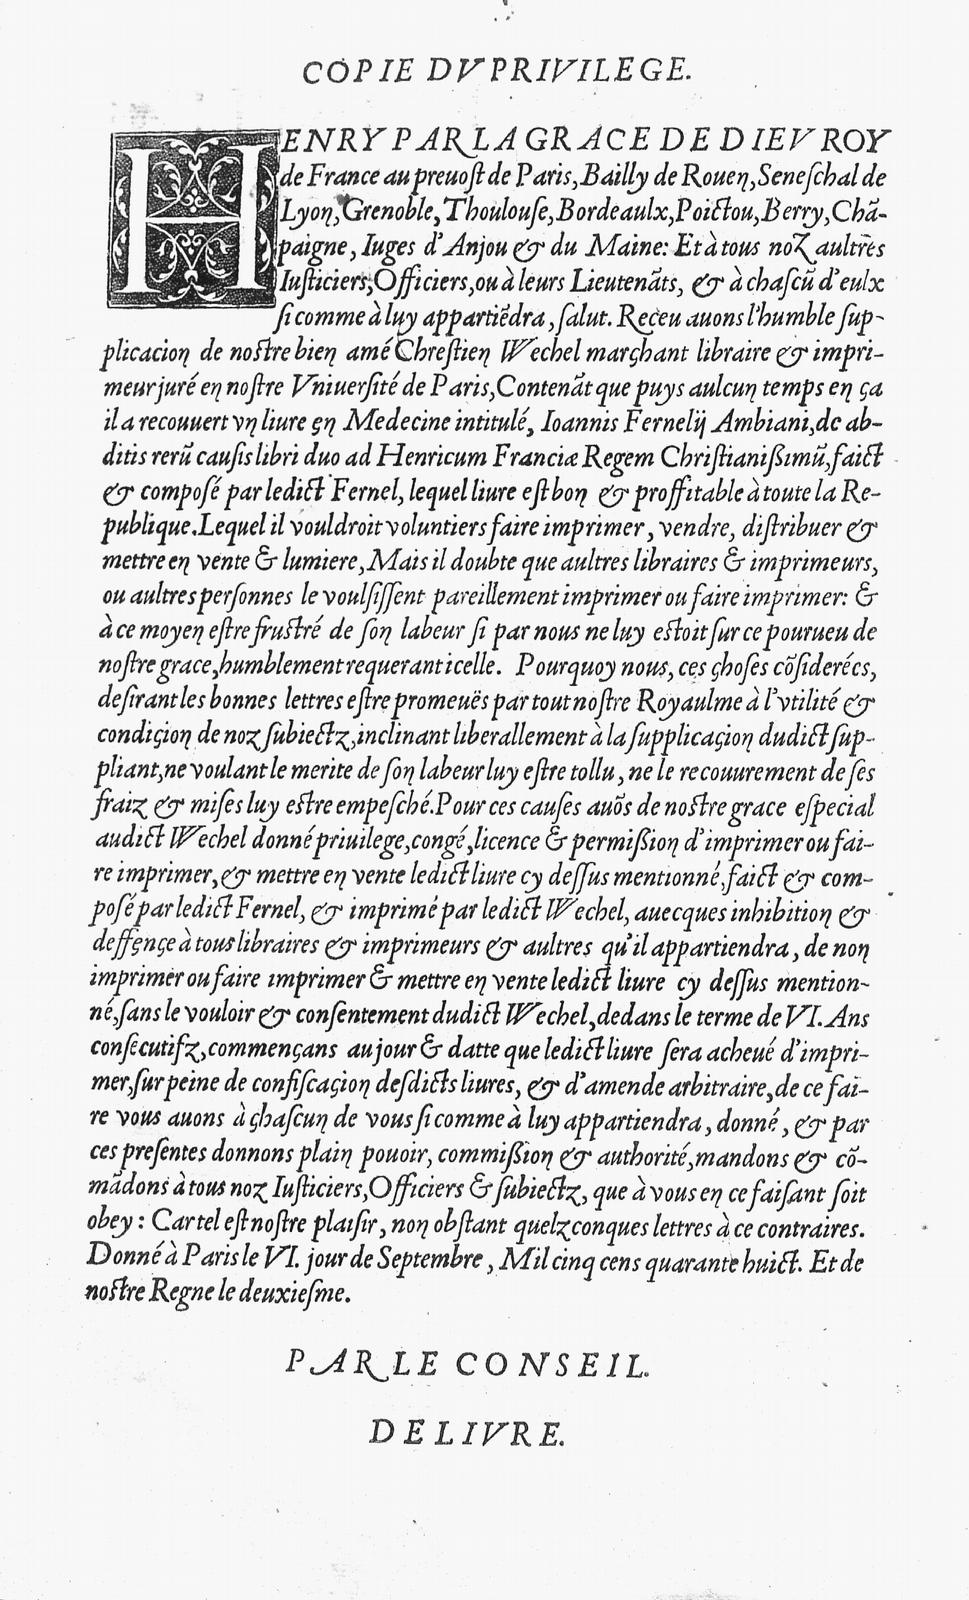 COPIE DV PRIVILEGE.
HENRY PAR LA GRACE DE DIEV ROY
de France au preuost de Paris, Bailly de Rouen, Seneſchal de
Lyon, Grenoble, Thoulouſe, Bordeaulx, Poictou, Berry, Chã-
paigne, Iuges d'Anjou & du Maine: Et à tous noz aultres
Iuſticiers, Officiers, ou à leurs Lieutenãts, & à chaſcũ d'eulx
ſi comme à luy appartiẽdra, ſalut. Receu auons l'humble ſup-
plicacion de noſtre bien amé Chreſtien Wechel marchant libraire & impri-
meur juré en noſtre Vniuerſité de Paris, Contenãt que puys aulcun temps en ça
il a recouuert vn liure en Medecine intitulé, Ioannis Fernelij Ambiani, de ab-
ditis rerũ cauſis libri duo ad Henricum Franciæ Regem Chriſtianiſsimũ, faict
& compoſé par ledict Fernel, lequel liure eſt bon & proffitable à toute la Re-
publique. Lequel il vouldroit voluntiers faire imprimer, vendre, diſtribuer &
mettre en vente & lumiere, Mais il doubte que aultres libraires & imprimeurs,
ou aultres perſonnes le voulſiſſent pareillement imprimer ou faire imprimer: &
à ce moyen eſtre fruſtré de ſon labeur ſi par nous ne luy eſtoit ſur ce pourueu de
noſtre grace, humblement requerant icelle. Pourquoy nous, ces choſes cõſiderées,
deſirant les bonnes lettres eſtre promeuës par tout noſtre Royaulme à l'vtilité &
condicion de noz ſubiectz, inclinant liberallement à la ſupplicacion dudict ſup-
pliant, ne voulant le merite de ſon labeur luy eſtre tollu, ne le recouurement de ſes
fraiz & miſes luy eſtre empeſché. Pour ces cauſes auõs de noſtre grace eſpecial
audict Wechel donné priuilege, congé, licence & permiſsion d'imprimer ou fai-
re imprimer, & mettre en vente ledict liure cy deſſus mentionné, faict & com-
poſé par ledict Fernel, & imprimé par ledict Wechel, auecques inhibition &
deffence à tous libraires & imprimeurs & aultres qu'il appartiendra, de non
imprimer ou faire imprimer & mettre en vente ledict liure cy deſſus mention-
né, ſans le vouloir & conſentement dudict Wechel, dedans le terme de VI. Ans
conſecutifz, commençans au jour & datte que ledict liure ſera acheué d'impri-
mer, ſur peine de confiſcacion deſdicts liures, & d'amende arbitraire, de ce fai-
re vous auons à chaſcun de vous ſi comme à luy appartiendra, donné, & par
ces preſentes donnons plain pouoir, commiſsion & authorité, mandons & cõ-
mãdons à tous noz Iuſticiers, Officiers & ſubiectz, que à vous en ce faiſant ſoit
obey: Car tel eſt noſtre plaiſir, non obſtant quelzconques lettres à ce contraires.
Donné à Paris le VI. jour de Septembre, Mil cinq cens quarante huict. Et de
noſtre Regne le deuxieſme.
PAR LE CONSEIL.
DELIVRE.